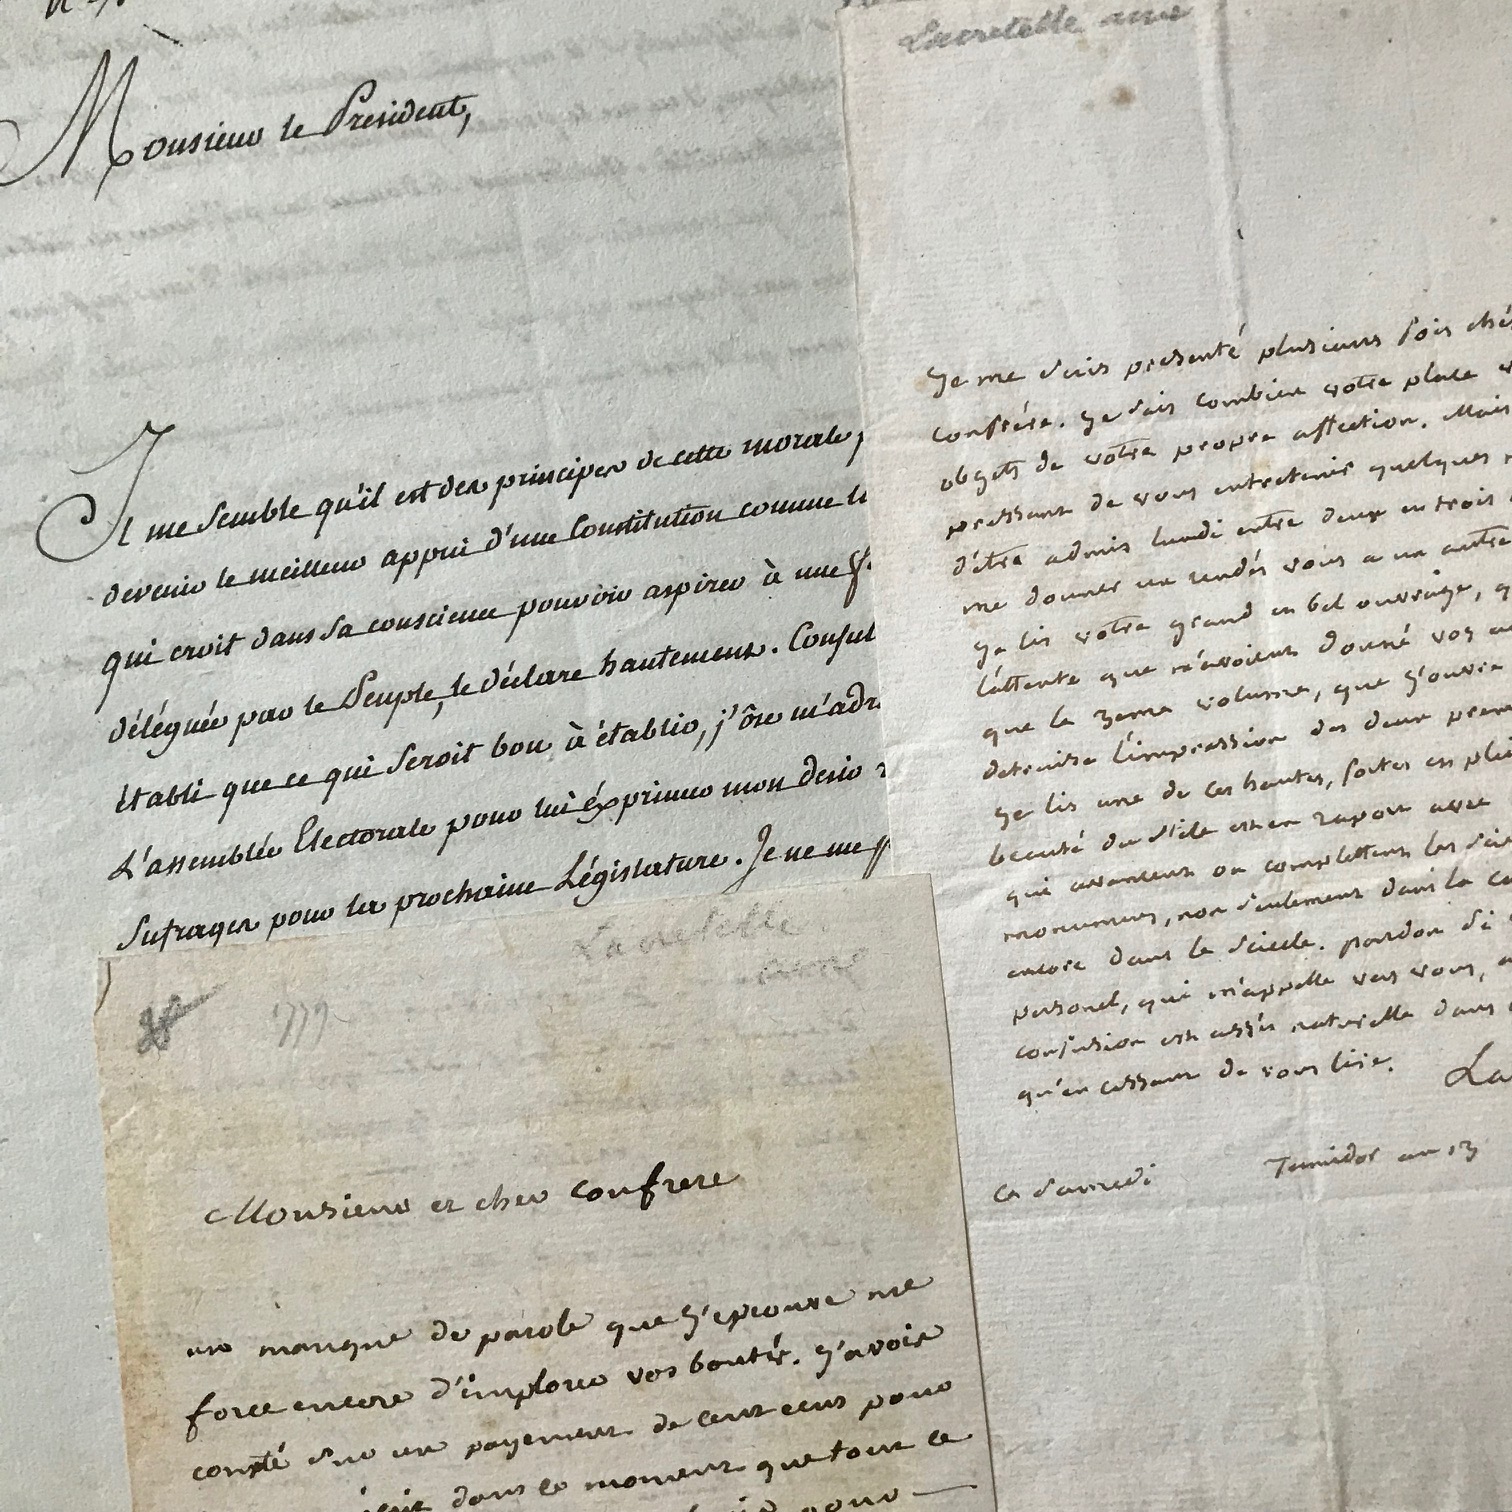 Monsieur le Président,
Il me semble qu'il est des principes de cette morale,
devenir le meilleur appui d'une Constitution comme
qui croit dans sa conscience pouvoir aspirer à une
déléguée par le Peuple, le déclare hautement. Consul
établi que ce qui seroit bon à établir, j'ôse m'adr
L'assemblée Electorale pour lui éxprimer mon desir
sufrages pour la prochaine Législature. Je ne me
Lacretelle ainé
Je me suis presenté plusieurs fois ché
confrére. Je sais combien votre place
objets de votre propre affection. Mais
pressant de vous entretenir quelques
d'être admis lundi entre deux ou trois
me donner un rendés vous a un autre
Je lis votre grand et bel ouvrage,
l'attente que m'avoient donné vos
que le 3eme volume, que j'ouvre
detruise l'impression des deux prem
Je lis une de ces hautes, fortes et
beauté du stile est en raport avec
qui avancent ou complettent les
monumens, non seulement dans la
encore dans le siecle. pardon si
personel, qui m'appelle vers vous,
confusion est assés naturelle dans
qu'en cessant de vous lire.
La
Ce samedi Termidor an 13
Lacretelle
ainé
Monsieur et cher confrere
un manque de parole que j'eprouve me
force encore d'implorer vos bontés. J'avois
compté sur un payement de cent ecus pour
dans le moment que tout ce
pour